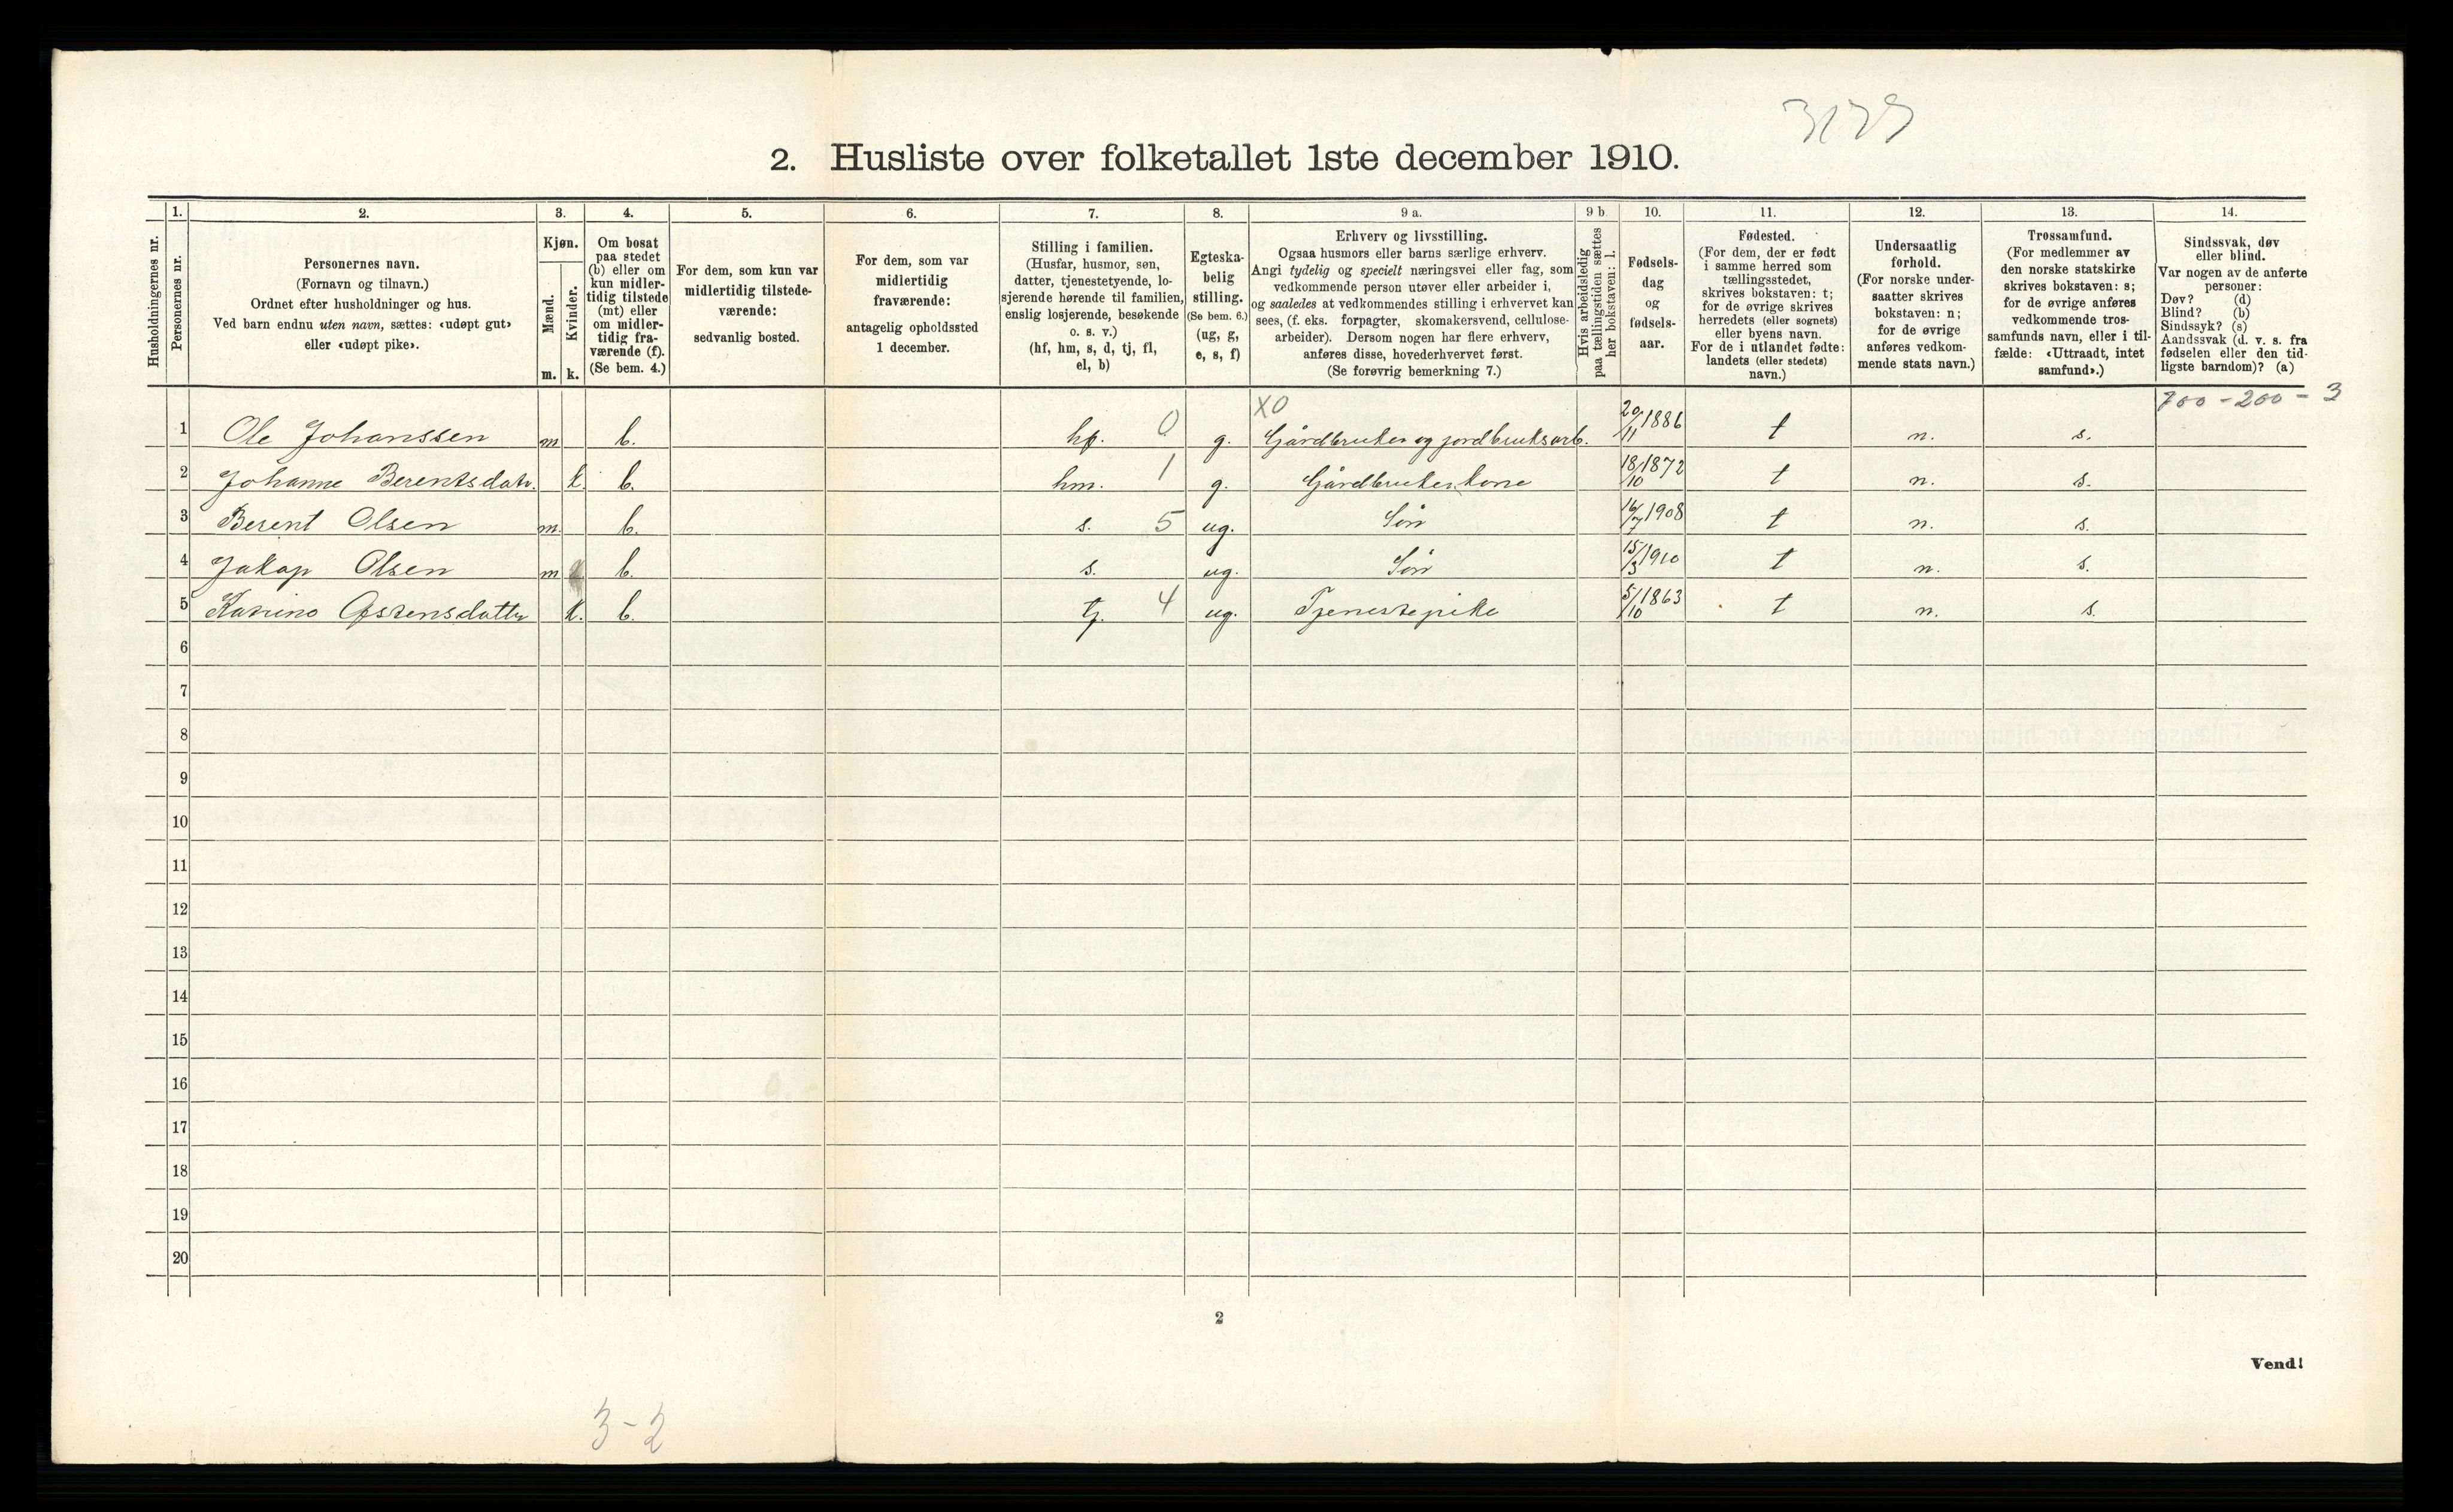 3129
2. Husliste over folketallet 1ste december 1910.
Husholdningernes nr.
1.
Personernes nr.
2.
Personernes navn.
(Fornavn og tilnavn.)
Ordnet efter husholdninger og hus.
Ved barn endnu uten navn, sættes: «udøpt gut»
eller «udøpt pike».
3.
Kjøn.
Mænd.
Kvinder.
m. k.
4.
Om bosat
paa stedet
(b) eller om
kun midler-
tidig tilstede
(mt) eller
om midler-
tidig fra-
værende (f).
(Se bem. 4.)
5.
For dem, som kun var
midlertidig tilstede-
værende:
sedvanlig bosted.
6.
For dem, som var
midlertidig
fraværende:
antagelig opholdssted
1 december.
7.
Stilling i familien.
(Husfar, husmor, søn,
datter, tjenestetyende, lo-
sjerende hørende til familien,
enslig losjerende, besøkende
o. s. v.)
(hf, hm, s, d, tj, fl,
el, b)
8.
Egteska-
belig
stilling.
(Se bem. 6.)
(ug, g,
e, s, f)
9 a.
Erhverv og livsstilling.
Ogsaa husmors eller barns særlige erhverv.
Angi tydelig og specielt næringsvei eller fag, som
vedkommende person utøver eller arbeider i,
og saaledes at vedkommendes stilling i erhvervet kan
sees, (f. eks. forpagter, skomakersvend, cellulose-
arbeider). Dersom nogen har flere erhverv,
anføres disse, hovederhvervet først.
(Se forøvrig bemerkning 7.)
9 b
Hvis arbeidsledig
paa tællingstiden sættes
her bokstaven: l.
10.
Fødsels-
dag
og
fødsels-
aar.
11.
Fødested.
(For dem, der er født
i samme herred som
tællingsstedet,
skrives bokstaven: t;
for de øvrige skrives
herredets (eller sognets)
eller byens navn.
For de i utlandet fødte:
landets (eller stedets)
navn.)
12.
Undersaatlig
forhold.
(For norske under-
saatter skrives
bokstaven: n;
for de øvrige
anføres vedkom-
mende stats navn.)
13.
Trossamfund.
(For medlemmer av
den norske statskirke
skrives bokstaven: s;
for de øvrige anføres
vedkommende tros-
samfunds navn, eller i til-
fælde: «Uttraadt, intet
samfund».)
14.
Sindssvak, døv
eller blind.
Var nogen av de anførte
personer:
Døv? (d)
Blind? (b)
Sindssyk? (s)
Aandssvak (d. v. s. fra
fødselen eller den tid-
ligste barndom)? (a)
X0 700 - 200 - 3
1 Ole Johanssen m b. hf. 0 g. Gårdbruker og jordbruksarb. 20/11 1886 t n. s.
2 Johanne Berentsdatr. k. b. hm. 1 g. Gårdbruker kone 18/10 1872 t n. s.
3 Berent Olsen m. b. s. 5 ug. Sön 16/7 1908 t n. s.
4 Jakop Olsen m b. s. ug. Sön 15/3 1910 t n. s.
5 k. b. tj. 4 ug. Tjenestepike 5/10 1863 t n. s.
6
7
8
9
10
11
12
13
14
15
16
17
18
19
20
2
Vend!
3-2